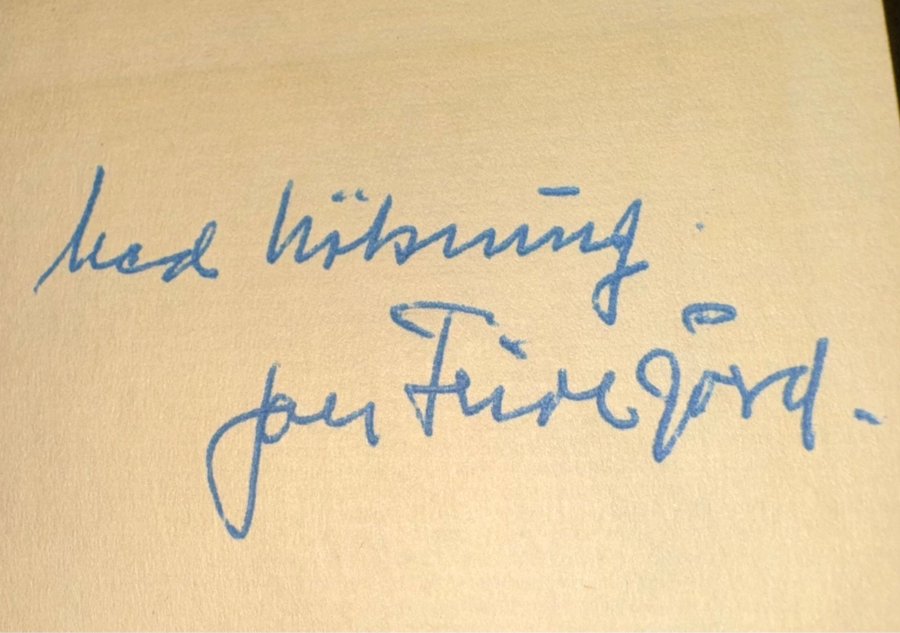 Med hälsning
Jan Fridegård